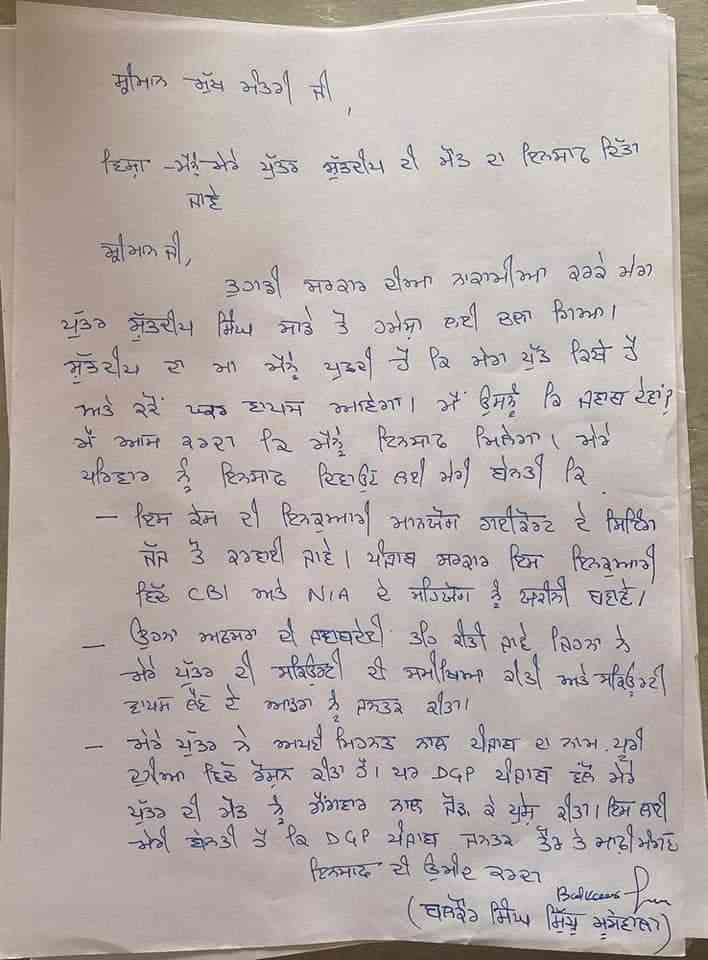 ਸ੍ਰੀਮਾਨ ਮੁੱਖ ਮੰਤਰੀ ਜੀ,
ਵਿਸ਼ਾ - ਮੈਨੂੰ ਮੇਰੇ ਪੁੱਤਰ ਸ਼ੁੱਭਦੀਪ ਦੀ ਮੌਤ ਦਾ ਇਨਸਾਫ ਦਿੱਤਾ
ਜਾਵੇ
ਸ੍ਰੀਮਾਨ ਜੀ,
ਤੁਹਾਡੀ ਸਰਕਾਰ ਦੀਆ ਨਾਕਾਮੀਆ ਕਰਕੇ ਮੇਰਾ
ਪੁੱਤਰ ਸ਼ੁੱਭਦੀਪ ਸਿੰਘ ਸਾਡੇ ਤੋ ਹਮੇਸ਼ਾ ਲਈ ਚਲਾ ਗਿਆ।
ਸ਼ੁੱਭਦੀਪ ਦਾ ਮਾ ਮੈਨੂੰ ਪੁਛਦੀ ਹੈ ਕਿ ਮੇਰਾ ਪੁੱਤ ਕਿਥੇ ਹੈ
ਅਤੇ ਕਦੋਂ ਘਰ ਵਾਪਸ ਆਵੇਗਾ। ਮੈਂ ਉਸਨੂੰ ਕਿ ਜਵਾਬ ਦੇਵਾਂ?
ਮੈਂ ਆਸ ਕਰਦਾ ਕਿ ਮੈਨੂੰ ਇਨਸਾਫ ਮਿਲੇਗਾ। ਮੇਰੇ
ਪਰਿਵਾਰ ਨੂੰ ਇਨਸਾਫ ਦਿਵਾਉਣ ਲਈ ਮੇਰੀ ਬੇਨਤੀ ਕਿ
- ਇਸ ਕੇਸ ਦੀ ਇਨਕੁਆਰੀ ਮਾਨਯੋਗ ਹਾਈਕੋਰਟ ਦੇ ਸਿਟਿੰਗ
ਜੱਜ ਤੋਂ ਕਰਵਾਈ ਜਾਵੇ। ਪੰਜਾਬ ਸਰਕਾਰ ਇਸ ਇਨਕੁਆਰੀ
ਵਿਚ CBI ਅਤੇ NIA ਦੇ ਸਹਿਯੋਗ ਨੂੰ ਯਕੀਨੀ ਬਣਾਵੇ।
- ਉਹਨਾ ਅਫਸਰਾ ਦੀ ਜਵਾਬਦੇਹੀ ਤਹਿ ਕੀਤੀ ਜਾਵੇ ਜਿਹਨਾ ਨੇ
ਮੇਰੇ ਪੁੱਤਰ ਦੀ ਸਕਿਉਰਟੀ ਦੀ ਸਮੀਖਿਆ ਕੀਤੀ ਅਤੇ ਸਕਿਉਰਟੀ
ਵਾਪਸ ਲੈਣ ਦੇ ਆਡਰਾ ਨੂੰ ਜਨਤਕ ਕੀਤਾ।
- ਮੇਰੇ ਪੁੱਤਰ ਨੇ ਅਪਣੀ ਮਿਹਨਤ ਨਾਲ ਪੰਜਾਬ ਦਾ ਨਾਮ ਪੂਰੀ
ਦੁਨੀਆ ਵਿਚੋ ਰੌਸ਼ਨ ਕੀਤਾ ਹੈ। ਪਰ DGP ਪੰਜਾਬ ਵੱਲੋ ਮੇਰੇ
ਪੁੱਤਰ ਦੀ ਮੌਤ ਨੂੰ ਗੈਂਗਵਾਰ ਨਾਲ ਜੋੜ ਕੇ ਪੇਸ਼ ਕੀਤਾ। ਇਸ ਲਈ
ਮੇਰੀ ਬੇਨਤੀ ਹੈ ਕਿ DGP ਪੰਜਾਬ ਜਨਤਕ ਤੌਰ ਤੇ ਮਾਫ਼ੀ ਮੰਗਣ
ਇਨਸਾਫ ਦੀ ਉਮੀਦ ਕਰਦਾ
(ਬਲਕੌਰ ਸਿੰਘ ਸਿੱਧੂ ਮੂਸੇਵਾਲਾ)